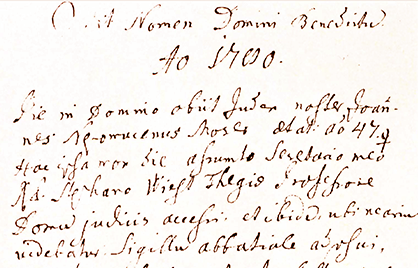 Sit Nomen Domini Benedictum
Ao 1780.
Pie in Domino obiit Judex noster Joan-
nes Nepomucenus Moser ætat: aõ 47.
Hac ipsa mox die assumto Secretario meo
P. Stephano Wiest Thegiæ Professore
Domū judicis accessi. et ibidē ubi necariū
videbatur Sigillū abbatiale apposui,